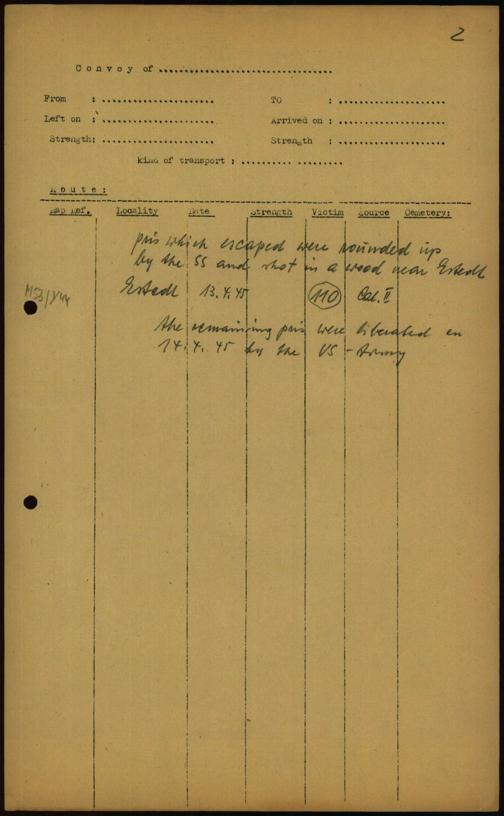 2
Convoy of ..............................
From : ....................
TO : ....................
Left on : ....................
Arrived on : ....................
Strength: ....................
Strength : ....................
kind of transport : .......... .........
Route:
Map Ref. Locality Date Strength Victim Source Cemetery:
pris which escaped were rounded up
by the SS and shot in a wood near Estedt
Estedt 13.4.45 110 Cat. II
the remaining pris were liberated on
14.4.45 by the US-Army